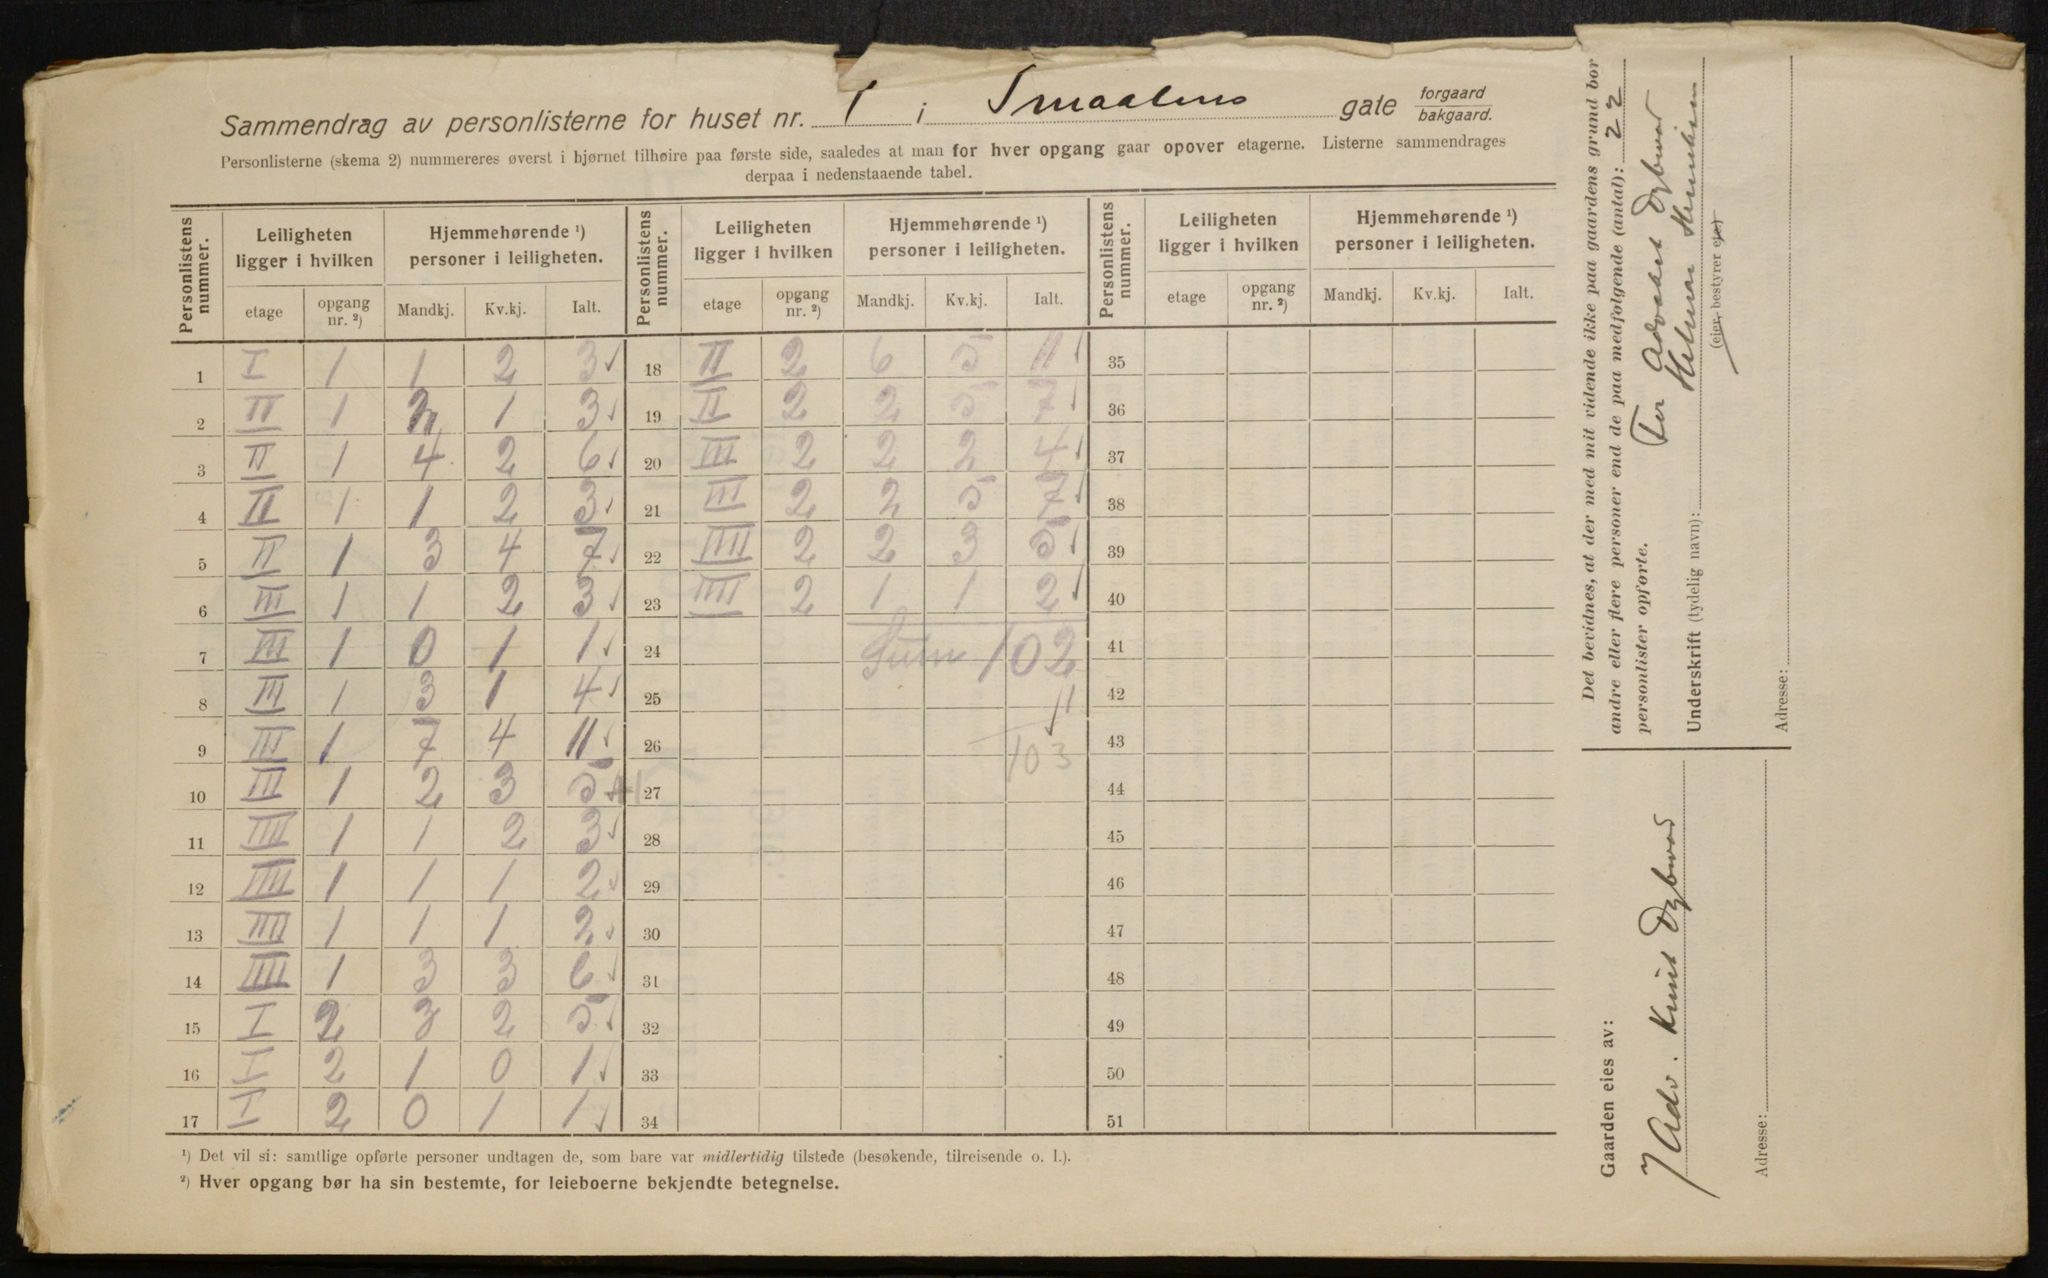 Sammendrag av personlisterne for huset nr. 1 i Smaalens gate forgaard bakgaard.
Personlisterne (skema 2) nummereres øverst i hjørnet tilhøire paa første side, saaledes at man for hver opgang gaar opover etagerne. Listerne sammendrages
derpaa i nedenstaaende tabel.
Personlistens nummer. Leiligheten ligger i hvilken Hjemmehørende ¹) personer i leiligheten. Personlistens nummer. Leiligheten ligger i hvilken Hjemmehørende ¹) personer i leiligheten. Personlistens nummer. Leiligheten ligger i hvilken Hjemmehørende ¹) personer i leiligheten.
etage opgang nr. ²) Mandkj. Kv.kj. Ialt. etage opgang nr. ²) Mandkj. Kv.kj. Ialt. etage opgang nr. ²) Mandkj. Kv.kj. Ialt.
1 I 1 1 2 3 ✓ 18 II 2 6 5 11 ✓ 35
2 II 1 2 1 3 ✓ 19 II 2 2 5 7 ✓ 36
3 II 1 4 2 6 ✓ 20 III 2 2 2 4 ✓ 37
4 II 1 1 2 3 ✓ 21 III 2 2 5 7 ✓ 38
5 II 1 3 4 7 ✓ 22 IIII 2 2 3 5 ✓ 39
6 III 1 1 2 3 ✓ 23 IIII 2 1 1 2 ✓ 40
7 III 1 0 1 1 ✓ 24 Sum 102 41
8 III 1 3 1 4 ✓ 25 1 42
9 III 1 7 4 11 ✓ 26 103 43
10 III 1 2 3 5 ✓ +1 27 44
11 III 1 1 2 3 ✓ 28 45
12 IIII 1 1 1 2 ✓ 29 46
13 IIII 1 1 1 2 ✓ 30 47
14 IIII 1 3 3 6 ✓ 31 48
15 I 2 3 2 5 ✓ 32 49
16 I 2 1 0 1 ✓ 33 50
17 I 2 0 1 1 ✓ 34 51
¹) Det vil si: samtlige opførte personer undtagen de, som bare var midlertidig tilstede (besøkende, tilreisende o. l.).
²) Hver opgang bør ha sin bestemte, for leieboerne bekjendte betegnelse.
Det bevidnes, at der med mit vidende ikke paa gaardens grund bor
andre eller flere personer end de paa medfølgende (antal): 22
personlister opførte.
For Advokat Dybwad
Underskrift (tydelig navn):
(eier, bestyrer etc.)
Adresse:
Gaarden eies av:
Adv. Knut Dybwad
Adresse: